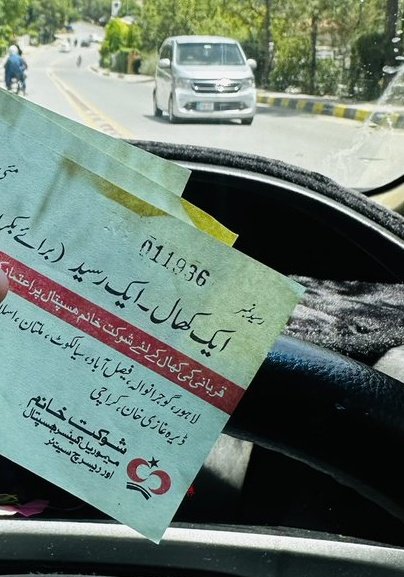 011936
رسید نمبر
ایک کھال۔ایک رسید (برائے بکرا
قربانی کی کھال کے لئے شوکت خانم ہسپتال پر اعتماد
لاہور، گوجرانوالہ، فیصل آباد، سیالکوٹ، ملتان،
ڈیرہ غازی خان، کراچی
شوکت خانم
میموریل کینسر ہسپتال
اور ریسرچ سینٹر